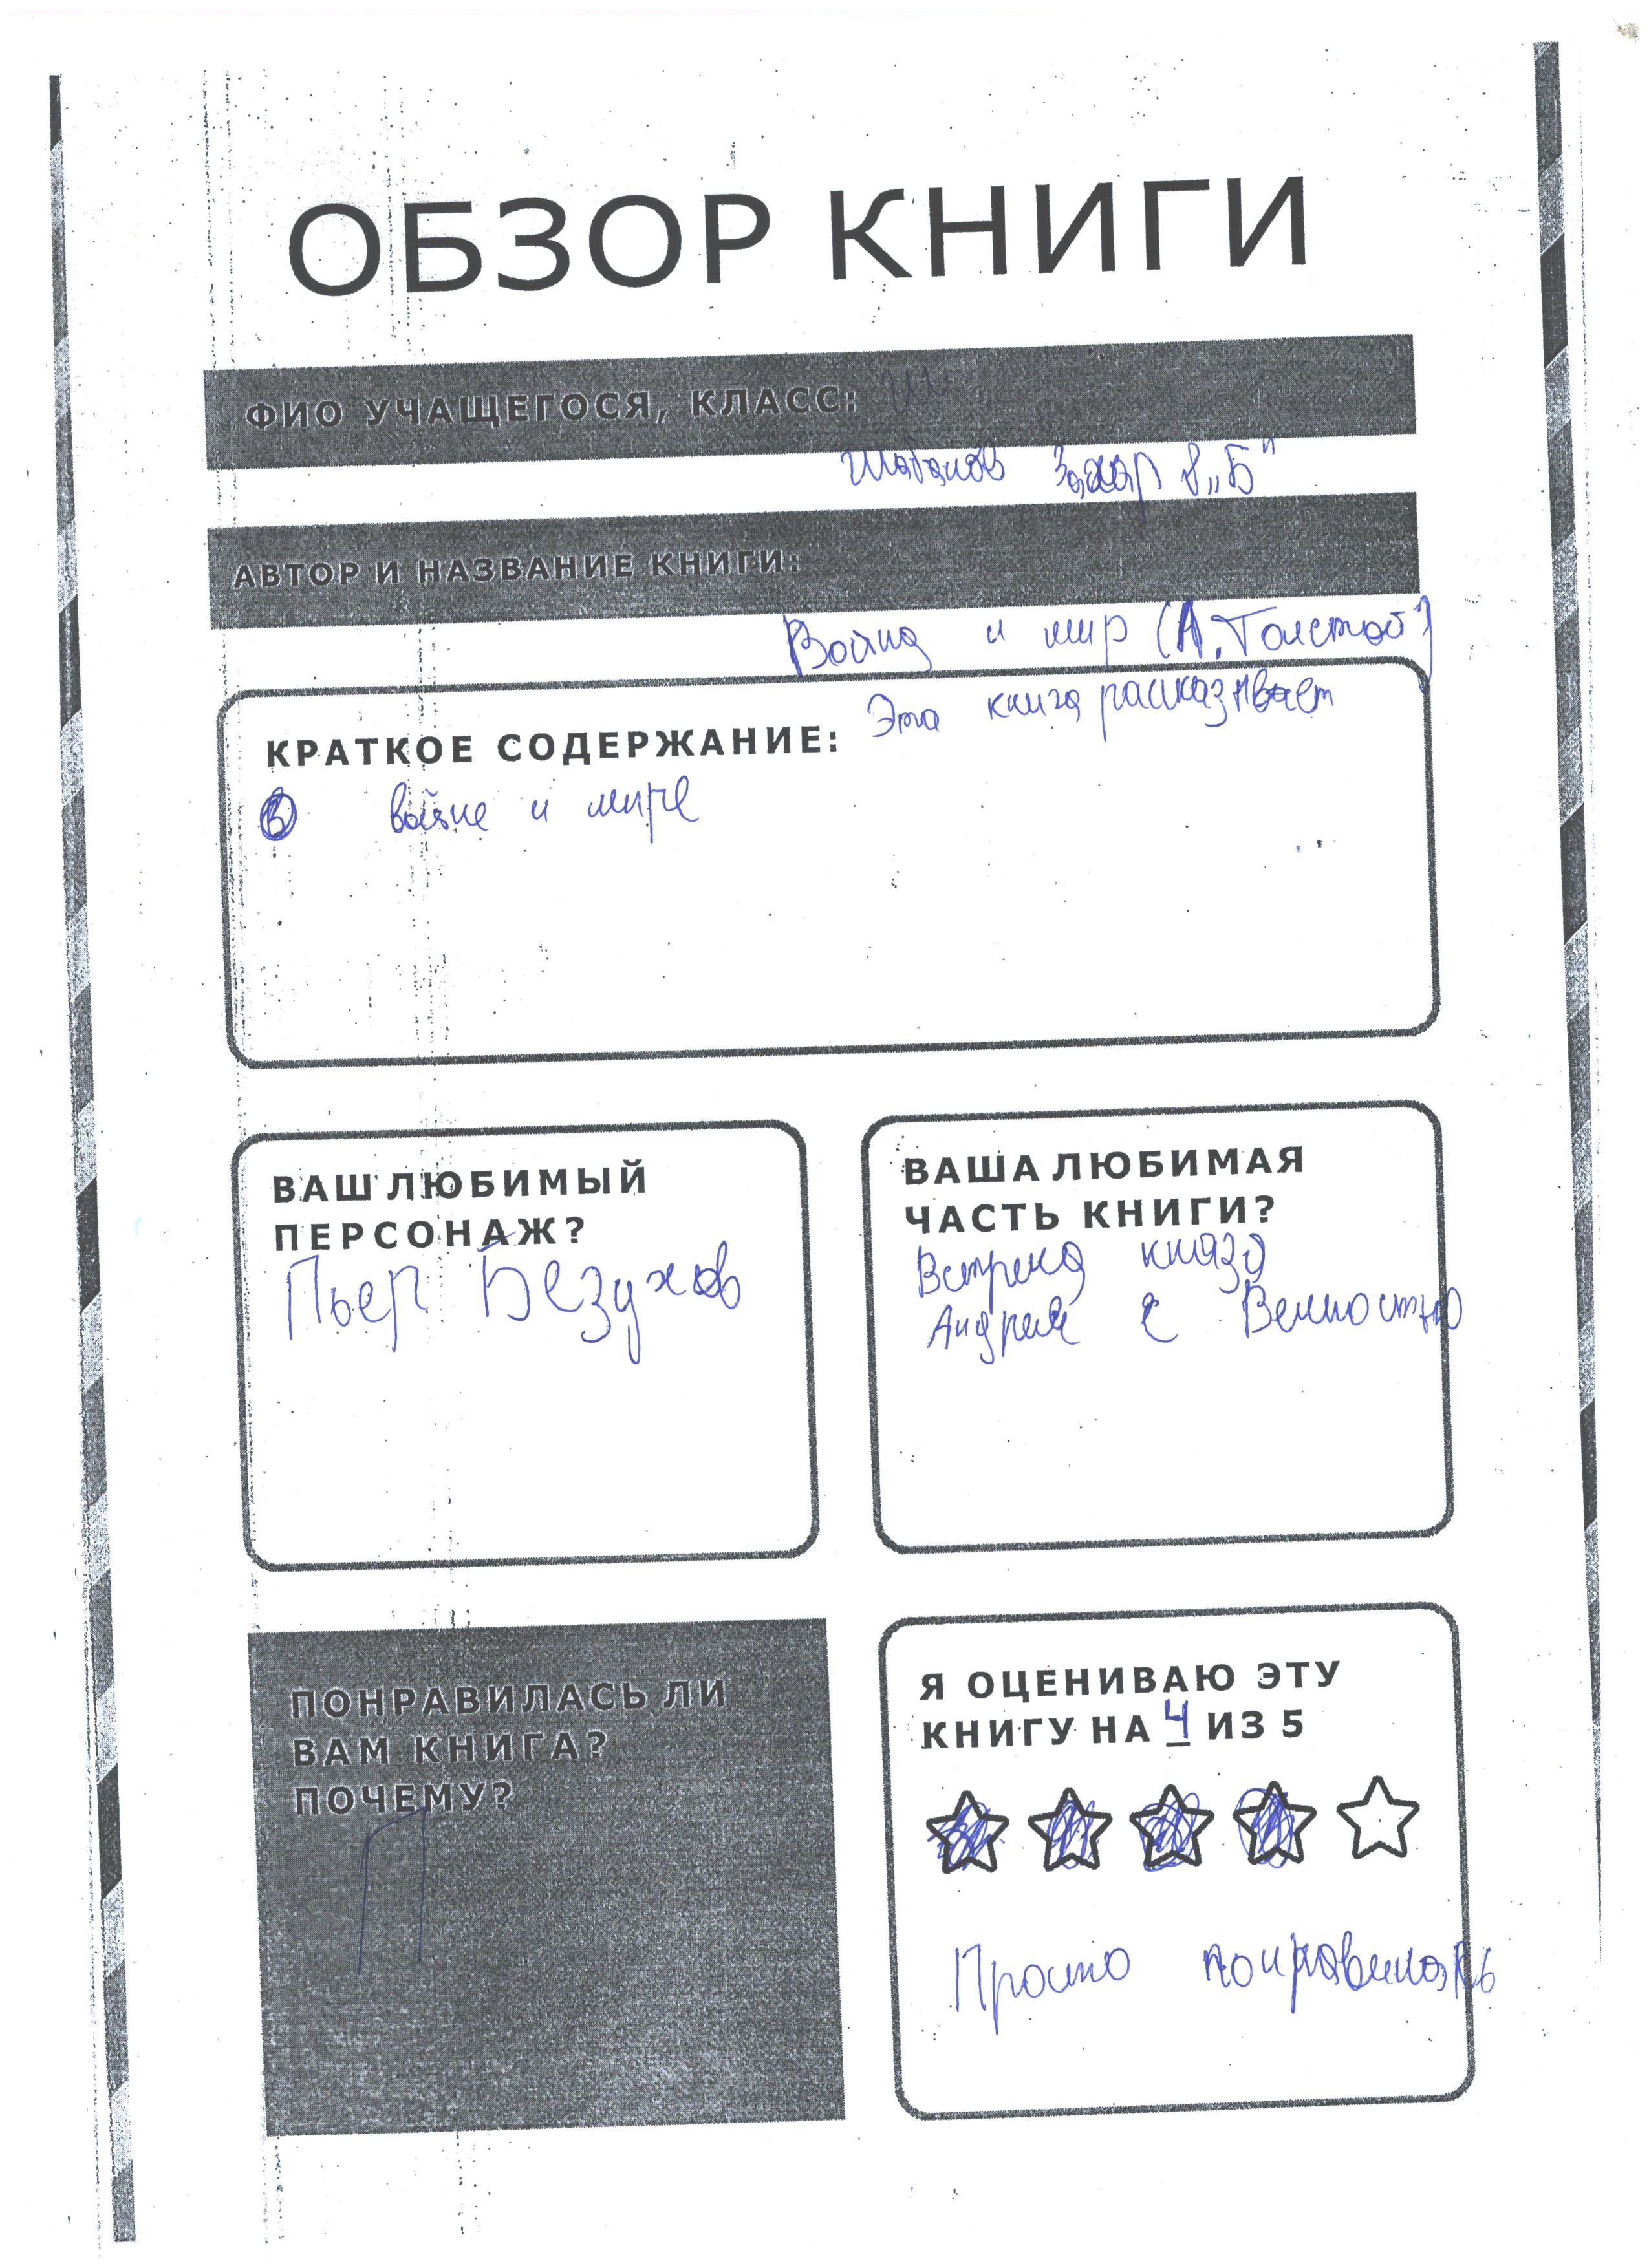 ОБЗОР КНИГИ
ФИО УЧАЩЕГОСЯ, КЛАСС: Ш
Шабанов Захар 8 „Б"
АВТОР И НАЗВАНИЕ КНИГИ:
Война и мир (Л. Толстой)
КРАТКОЕ СОДЕРЖАНИЕ: Эта книга рассказывает
о войне и мире
ВАШ ЛЮБИМЫЙ
ПЕРСОНАЖ?
Пьер Безухов
ВАША ЛЮБИМАЯ
ЧАСТЬ КНИГИ?
Встреча князя
Андрея с
ПОНРАВИЛАСЬ ЛИ
ВАМ КНИГА?
ПОЧЕМУ?
П
Я ОЦЕНИВАЮ ЭТУ
КНИГУ НА 4 ИЗ 5
Просто понравилась